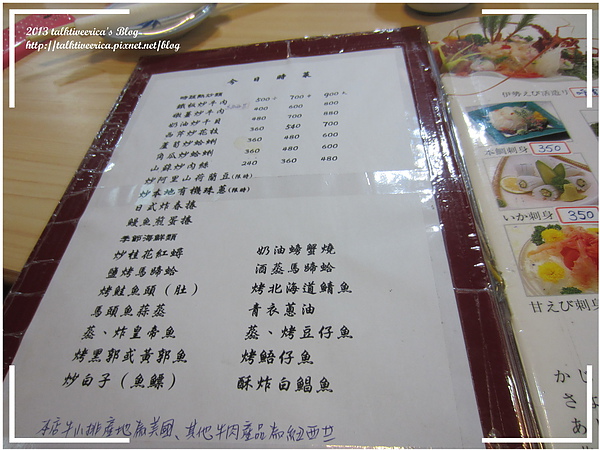 2013 talktiveerica's Blog
http://talktiveerica.pixnet.net/blog
今日時菜
時蔬熱炒類
鐵板炒牛肉 500元 700元 900元
嫩薑炒牛肉 400 600 800
奶油炒干貝 480 700 880
西芹炒花枝 360 540 700
蘆筍炒蛤蜊 360 480 600
角瓜炒蛤蜊 360 480 600
山蘇炒肉絲 240 360 480
炒阿里山荷蘭豆(限時)
炒本地有機珠蔥(限時)
日式炸春捲
鰻魚煎蛋捲
季節海鮮類
炒桂花紅蟳 奶油螃蟹燒
鹽烤馬蹄蛤 酒蒸馬蹄蛤
烤鮭魚頭(肚) 烤北海道鯖魚
馬頭魚蒜蒸 青衣蔥油
蒸、炸皇帝魚 蒸、烤豆仔魚
烤黑郭或黃郭魚 烤鯃仔魚
炒白子(魚鰾) 酥炸白鯧魚
本店牛小排產地為美國、其他牛肉產品為紐西兰
伊勢えび活造り
本鯛刺身 350
いか刺身 350
甘えび刺身
かじ
さな
あり